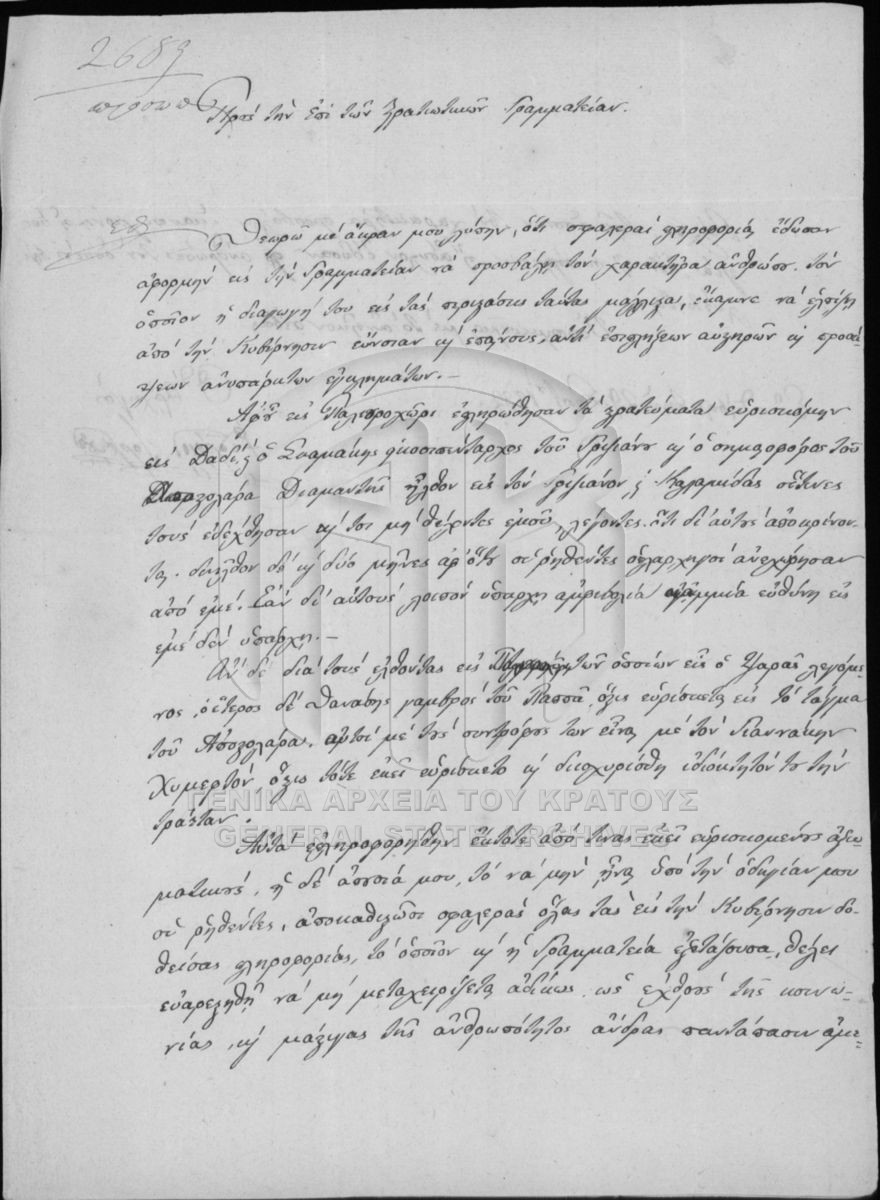 2689
Πρός τὴν ἐπὶ τῶν Στρατιωτικῶν Γραμματείαν.
Θεωρῶ μὲ ἄκραν μου λύπην, ὅτι σφαλεραὶ πληροφορίαι ἔδωσαν
ἀφορμὴν εἰς τὴν Γραμματείαν νὰ προσβάλῃ τὸν χαρακτῆρα ἀνθρώπου τὸν
ὁποῖον ἡ διαγωγή του εἰς τὰς περιστάσεις ταύτας μάλιστα, ἔκαμνε νὰ ἐλπίζῃ
ἀπὸ τὴν Κυβέρνησιν εὔνοιαν καὶ ἐπαίνους, ἀντὶ ἐπιπλήξεων αὐστηρῶν καὶ προσά-
ψεων ἀνυπάρκτων ἐγκλημάτων.—
Ἀφοῦ εἰς Παλιοροχῶρι ἐπληρώθησαν τὰ στρατεύματα εὑρισκόμην
εἰς Δαδί, ὁ Σταμάκης εἰκοσιπένταρχος τοῦ Γριζιάνου καὶ ὁ σημαιοφόρος τοῦ
Ἀποστολάρα Διαμαντῆς ἦλθον εἰς τὸν Γριζιάνον, καὶ Καλαμίδας οἵτινες
τοὺς ἐδέχθησαν καίτοι μὴ θέλοντες ἐμοῦ, λέγοντες ὅτι δι' αὐτοὺς ἀποκρίνον-
ται. διῆλθον δὲ καὶ δύο μῆνες ἀφ' ὅτου οἱ ῥηθέντες ὁπλαρχηγοὶ ἀνεχώρησαν
ἀπὸ ἐμέ. Ἐὰν δι' αὐτοὺς λοιπὸν ὑπάρχῃ ἀμφιβολία καμμία εὐθύνη εἰς
ἐμὲ δὲν ὑπάρχει.—
Ἂν δὲ διὰ τοὺς ἐλθόντας εἰς τῶν ὁποίων εἷς ὁ Ψαρᾶς λεγόμε-
νος, ὁ ἕτερος δὲ Θανάσης γαμβρὸς τοῦ Παππᾶ, ὅστις εὑρίσκεται εἰς τὸ τάγμα
τοῦ Ἀποστολάρα. αὐτοὶ μὲ τοὺς συντρόφους των εἶναι μὲ τὸν Γιαννάκην
Χυμερτόν, ὅστις τότε ἐκεῖ εὑρίσκετο καὶ διισχυρίσθη ἰδιόκτητόν του τὴν
τράταν.
Αὐτὰ ἐπληροφορήθην ἔκτοτε ἀπό τινας ἐκεῖ εὑρισκομένους ἀξιω-
ματικούς, ἡ δὲ ἀπουσία μου, τὸ νὰ μὴν ἦναι ὑπὸ τὴν ὁδηγίαν μου
οἱ ῥηθέντες, ἀποκαθιστῶσι σφαλερὰς ὅλας τὰς εἰς τὴν Κυβέρνησιν δο-
θείσας πληροφορίας, τὸ ὁποῖον καὶ ἡ Γραμματεία ἐξετάζουσα, θέλει
εὐαρεστηθῆ νὰ μὴ μεταχειρίζεται ἀδίκως ὡς ἐχθροὺς τῆς κοινω-
νίας, καὶ μάστιγας τῆς ἀνθρωπότητος ἄνδρας παντάπασιν ἀμε-
ΓΕΝΙΚΑ ΑΡΧΕΙΑ ΤΟΥ ΚΡΑΤΟΥΣ
GENERAL STATE ARCHIVES